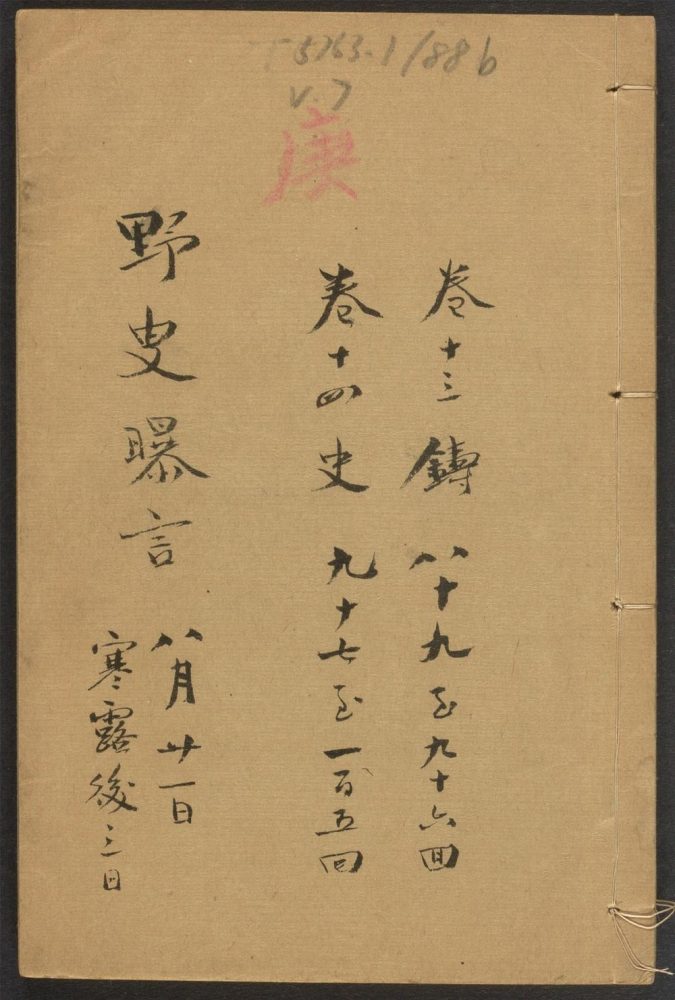 T 5763.1/88b
v.7
庚
卷十三 鑄 八十九至九十六回
卷十四 史 九十七至一百五回
野叟曝言
八月廿一日
寒露後三日